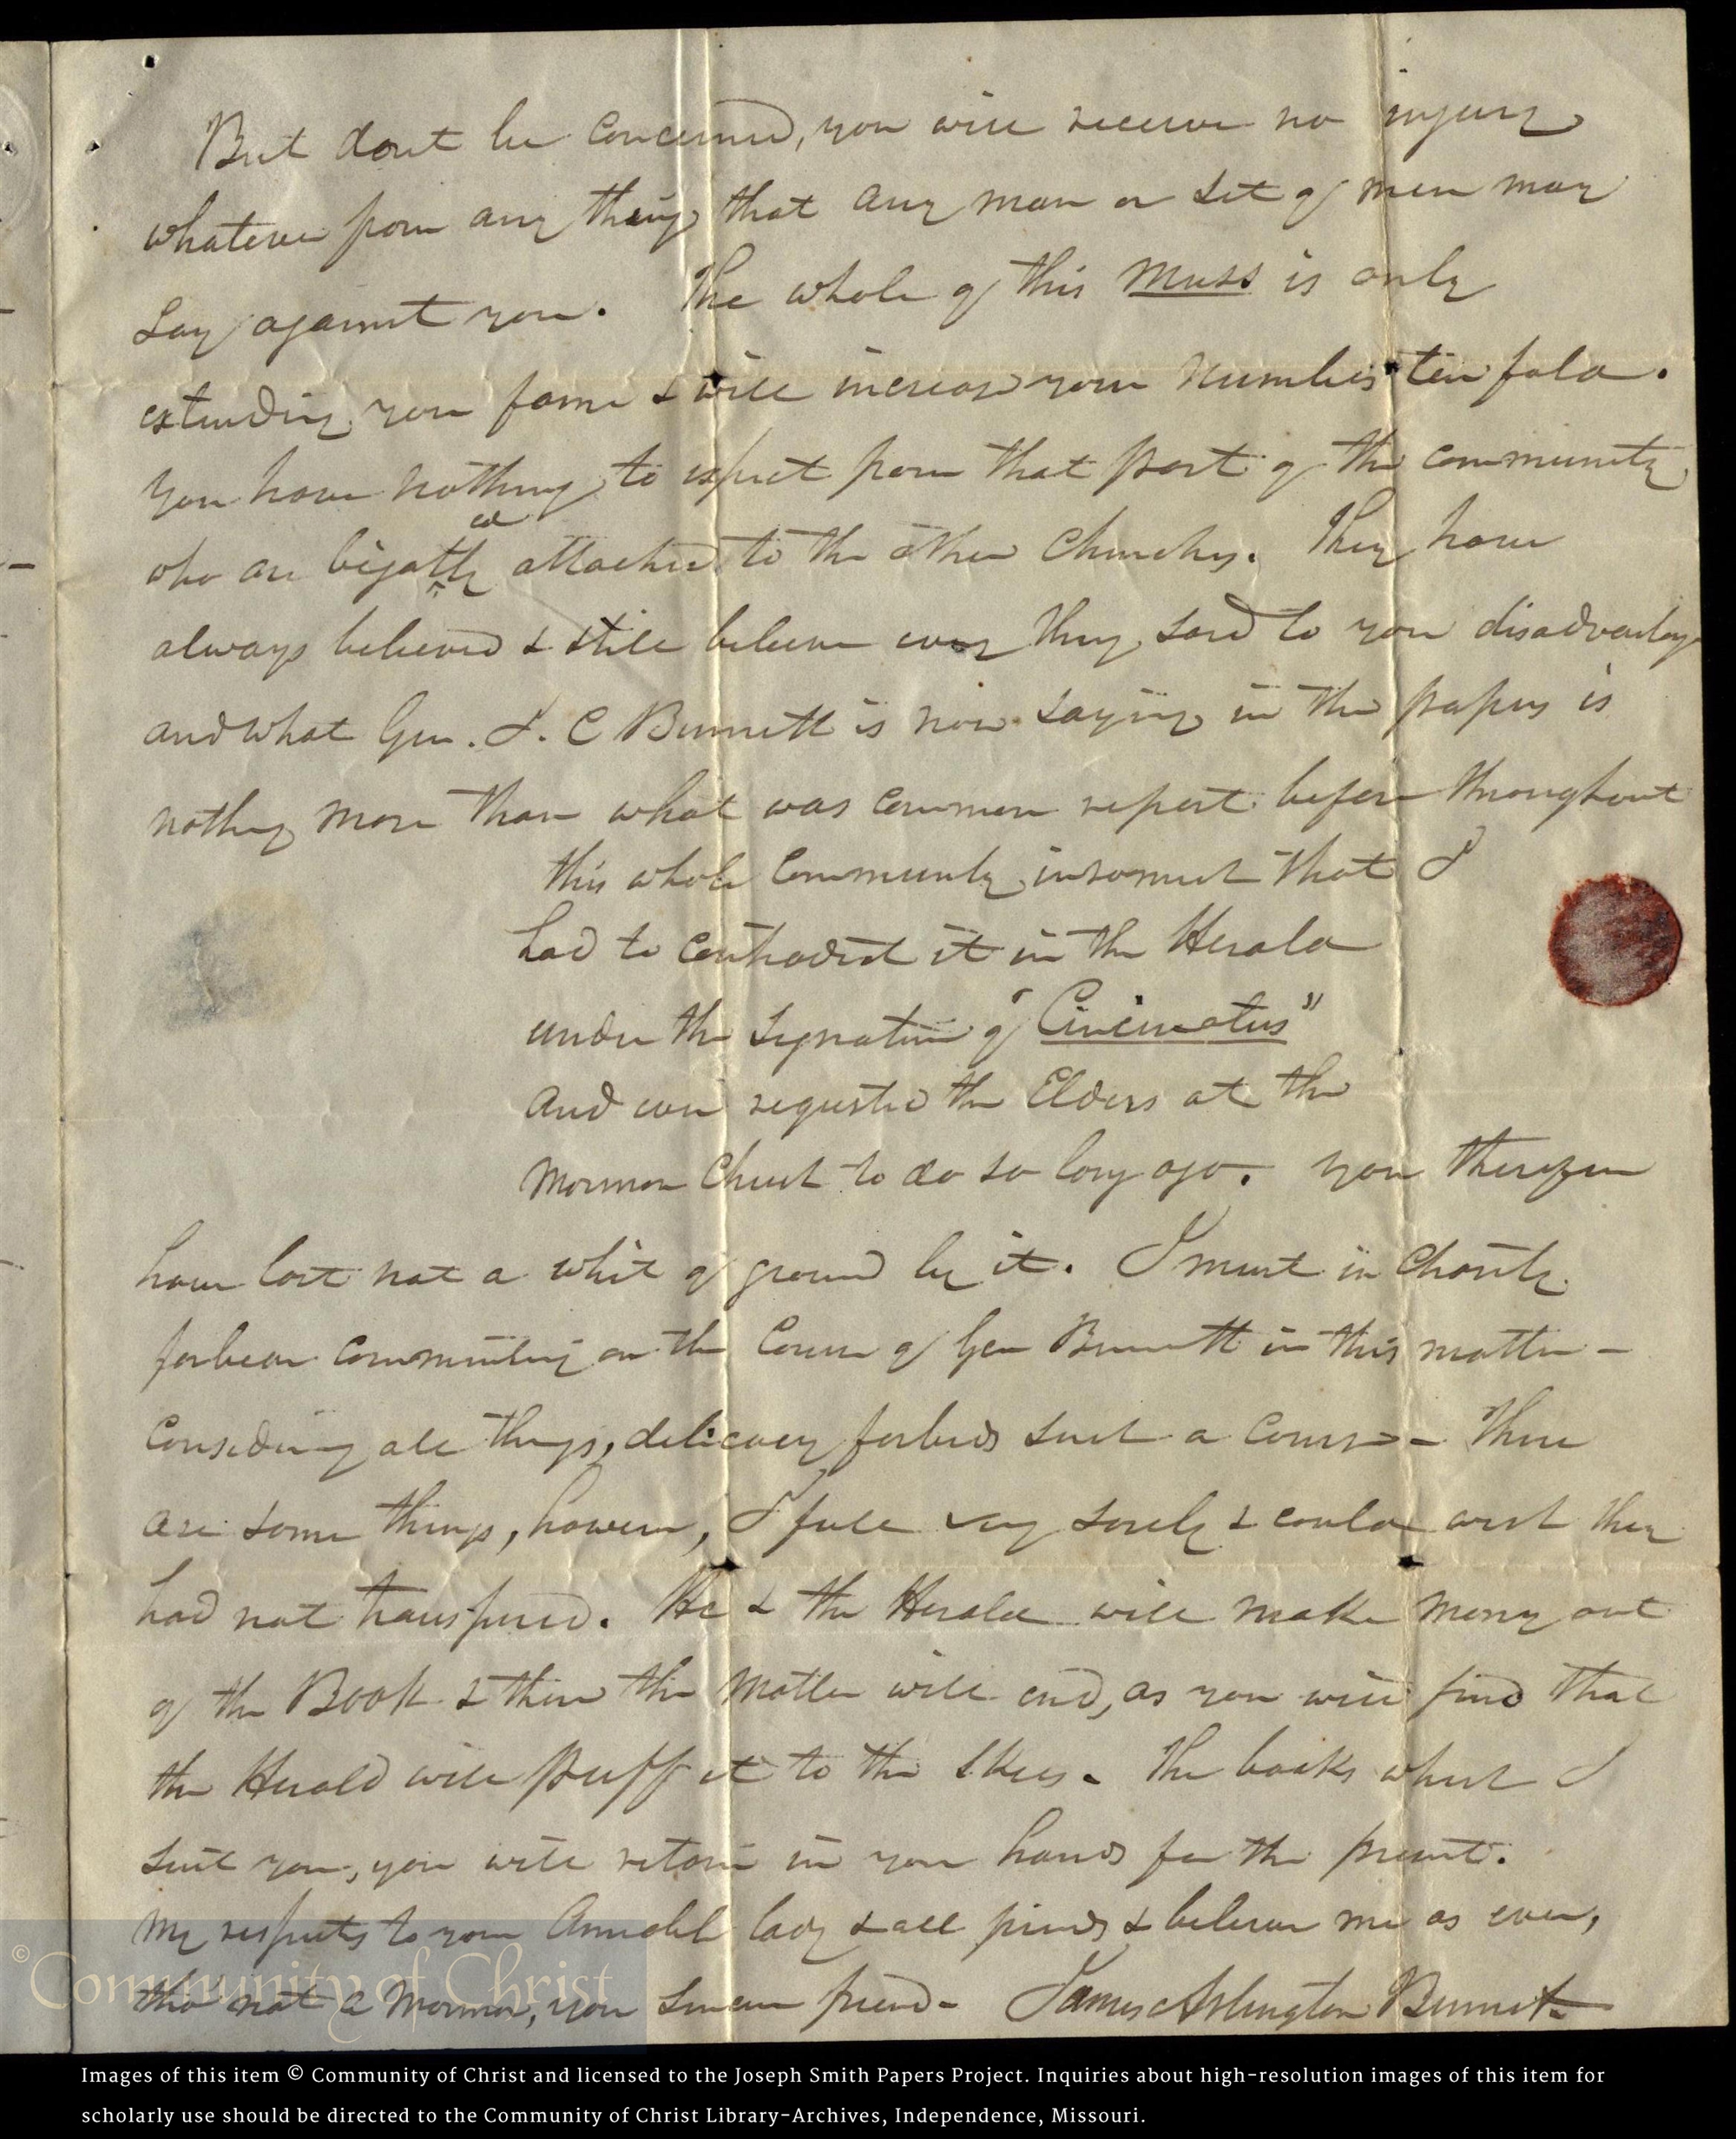 But dont be concerned, you will receive no injury
whatever from any thing that any man or set of men may
say against you. The whole of this Muss is only
extending your fame & will increase your numbers ten fold.
You have nothing to expect from that part of the community
who are bigottedly attached to the other Churches. They have
always believed & still believe every thing said to your disadvantage
and what Gen. J. C Bennett is now saying in the papers is
nothing more than what was common report before throughout
this whole community insomuch that I
had to contradict it in the Herald
under the signature of "Cincinnatus"
and even requested the Elders at the
Mormon Church to do so long ago. You therefore
have lost not a whit of ground by it. I must in Charity
forbear commenting on the Course of Gen Bennett in this matter –
Considering all things, delicacy forbids such a Course – There
are some things, however, I feel very sorely & could wish they
had not transpired. He & the Herald will make money out
of the Book & there the matter will end, as you will find that
the Herald will puff it to the skies. The books which I
sent you, you will retain in your hands for the present.
My respects to your Amiable lady & all friends & believe me as ever,
tho' not a Mormon, your sincere friend – James Arlington Bennet
©Community of Christ
Images of this item © Community of Christ and licensed to the Joseph Smith Papers Project. Inquiries about high-resolution images of this item for
scholarly use should be directed to the Community of Christ Library-Archives, Independence, Missouri.